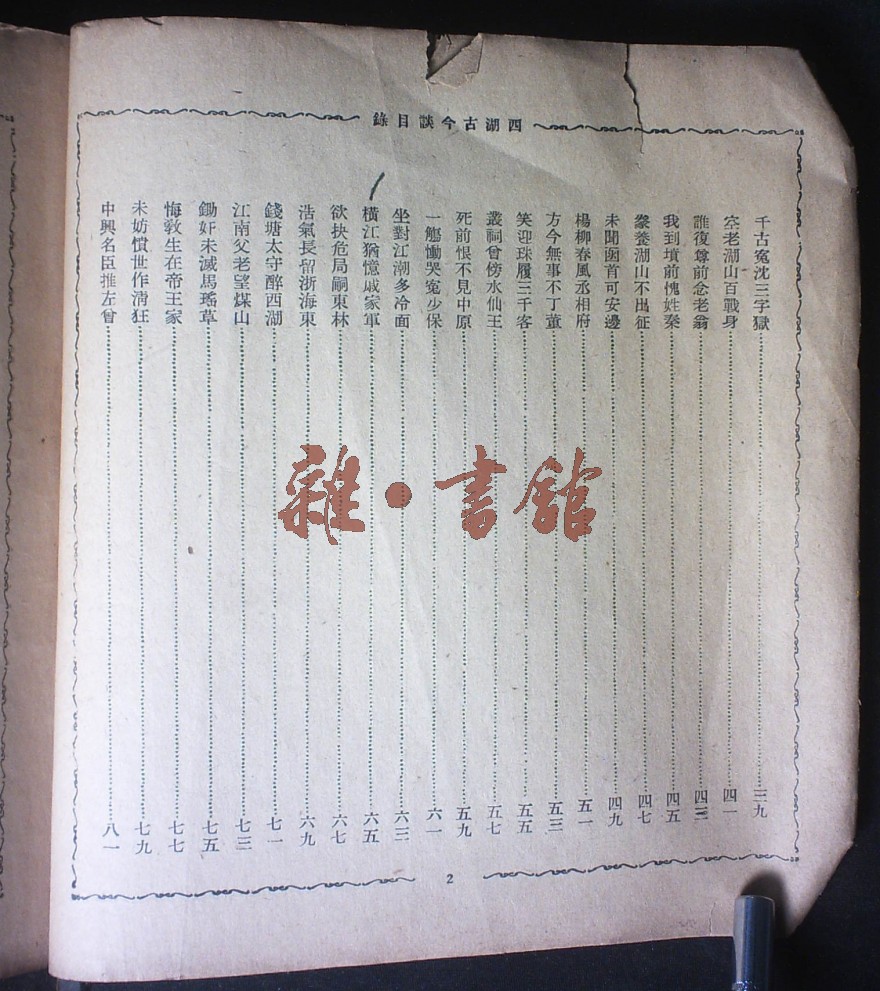 西湖古今談目錄
千古冤沈三字獄 三九
空老湖山百戰身 四一
誰復尊前念老翁 四三
我到墳前愧姓秦 四五
豢養湖山不出征 四七
未聞函首可安邊 四九
楊柳春風丞相府 五一
方今無事不丁董 五三
笑迎珠履三千客 五五
叢祠曾傍水仙王 五七
死前恨不見中原 五九
一觴慟哭寃少保 六一
坐對江潮多冷面 六三
橫江猶憶戚家軍 六五
欲抉危局嗣東林 六七
浩氣長留浙海東 六九
錢塘太守醉西湖 七一
江南父老望煤山 七三
鋤奸未滅馬瑤草 七五
悔教生在帝王家 七七
未妨憤世作清狂 七九
中興名臣推左曾 八一
2
雜·書館